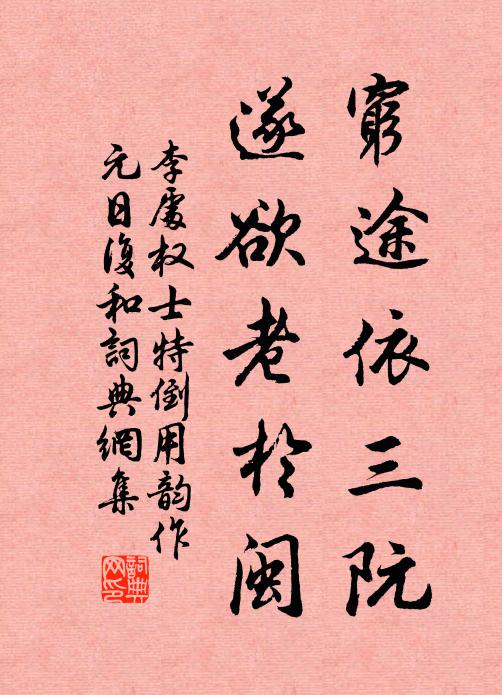 窮途依三阮
遂欲老於闽
李處权士特倒用韵作
元日復和詞典網集
詞典网印